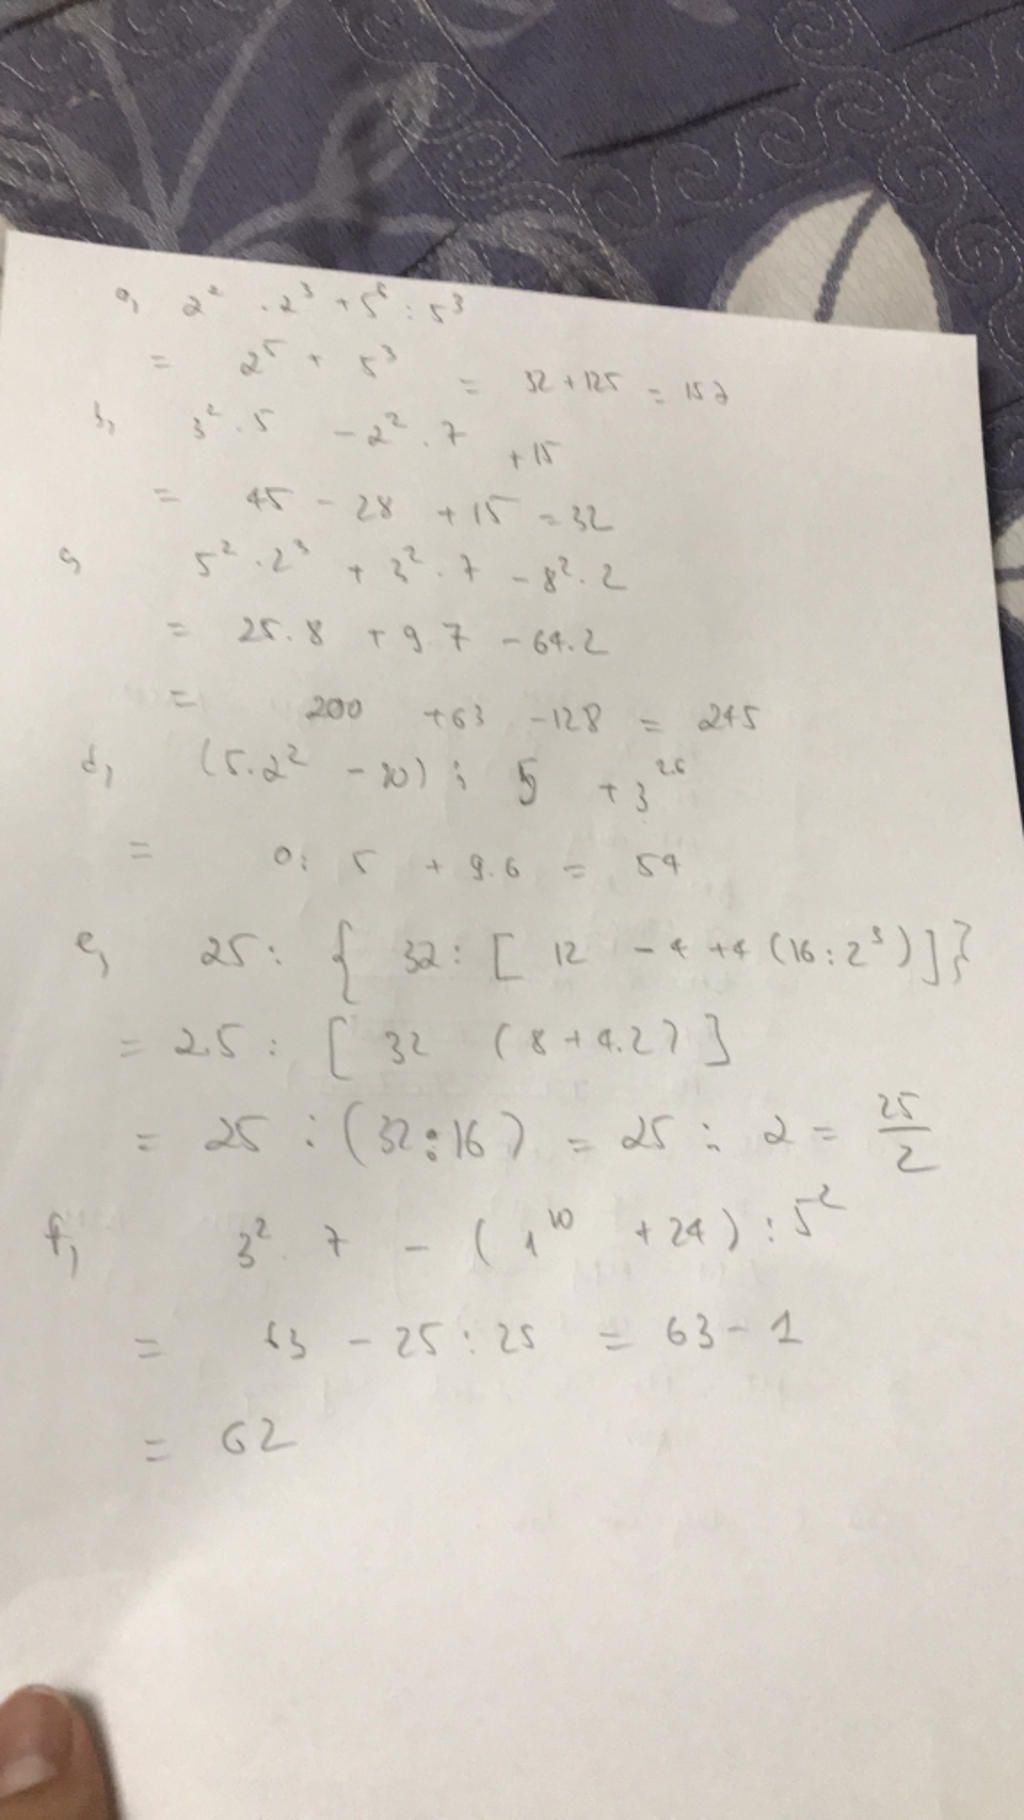 a, 2² . 2³ + 5⁶ : 5³
= 2⁵ + 5³ = 32 + 125 = 157
b, 3² . 5 - 2² . 7 + 15
= 45 - 28 + 15 = 32
c, 5² . 2³ + 3² . 7 - 8² . 2
= 25 . 8 + 9 . 7 - 64 . 2
= 200 + 63 - 128 = 245
d, (5 . 2² - 20) : 5 + 3² · ⁶
= 0 : 5 + 9 . 6 = 54
e, 25 : { 32 : [ 12 - 4 + 4 (16 : 2³) ] }
= 25 : [ 32 (8 + 4 . 2) ]
= 25 : (32 : 16) = 25 : 2 = 25/2
f, 3² . 7 - ( 1¹⁰ + 24) : 5²
= 63 - 25 : 25 = 63 - 1
= 62